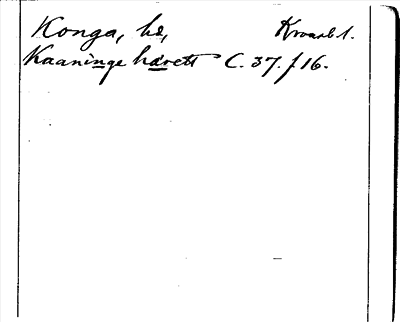 Konga, hd,
Kaaninge härett C. 37. f 16.